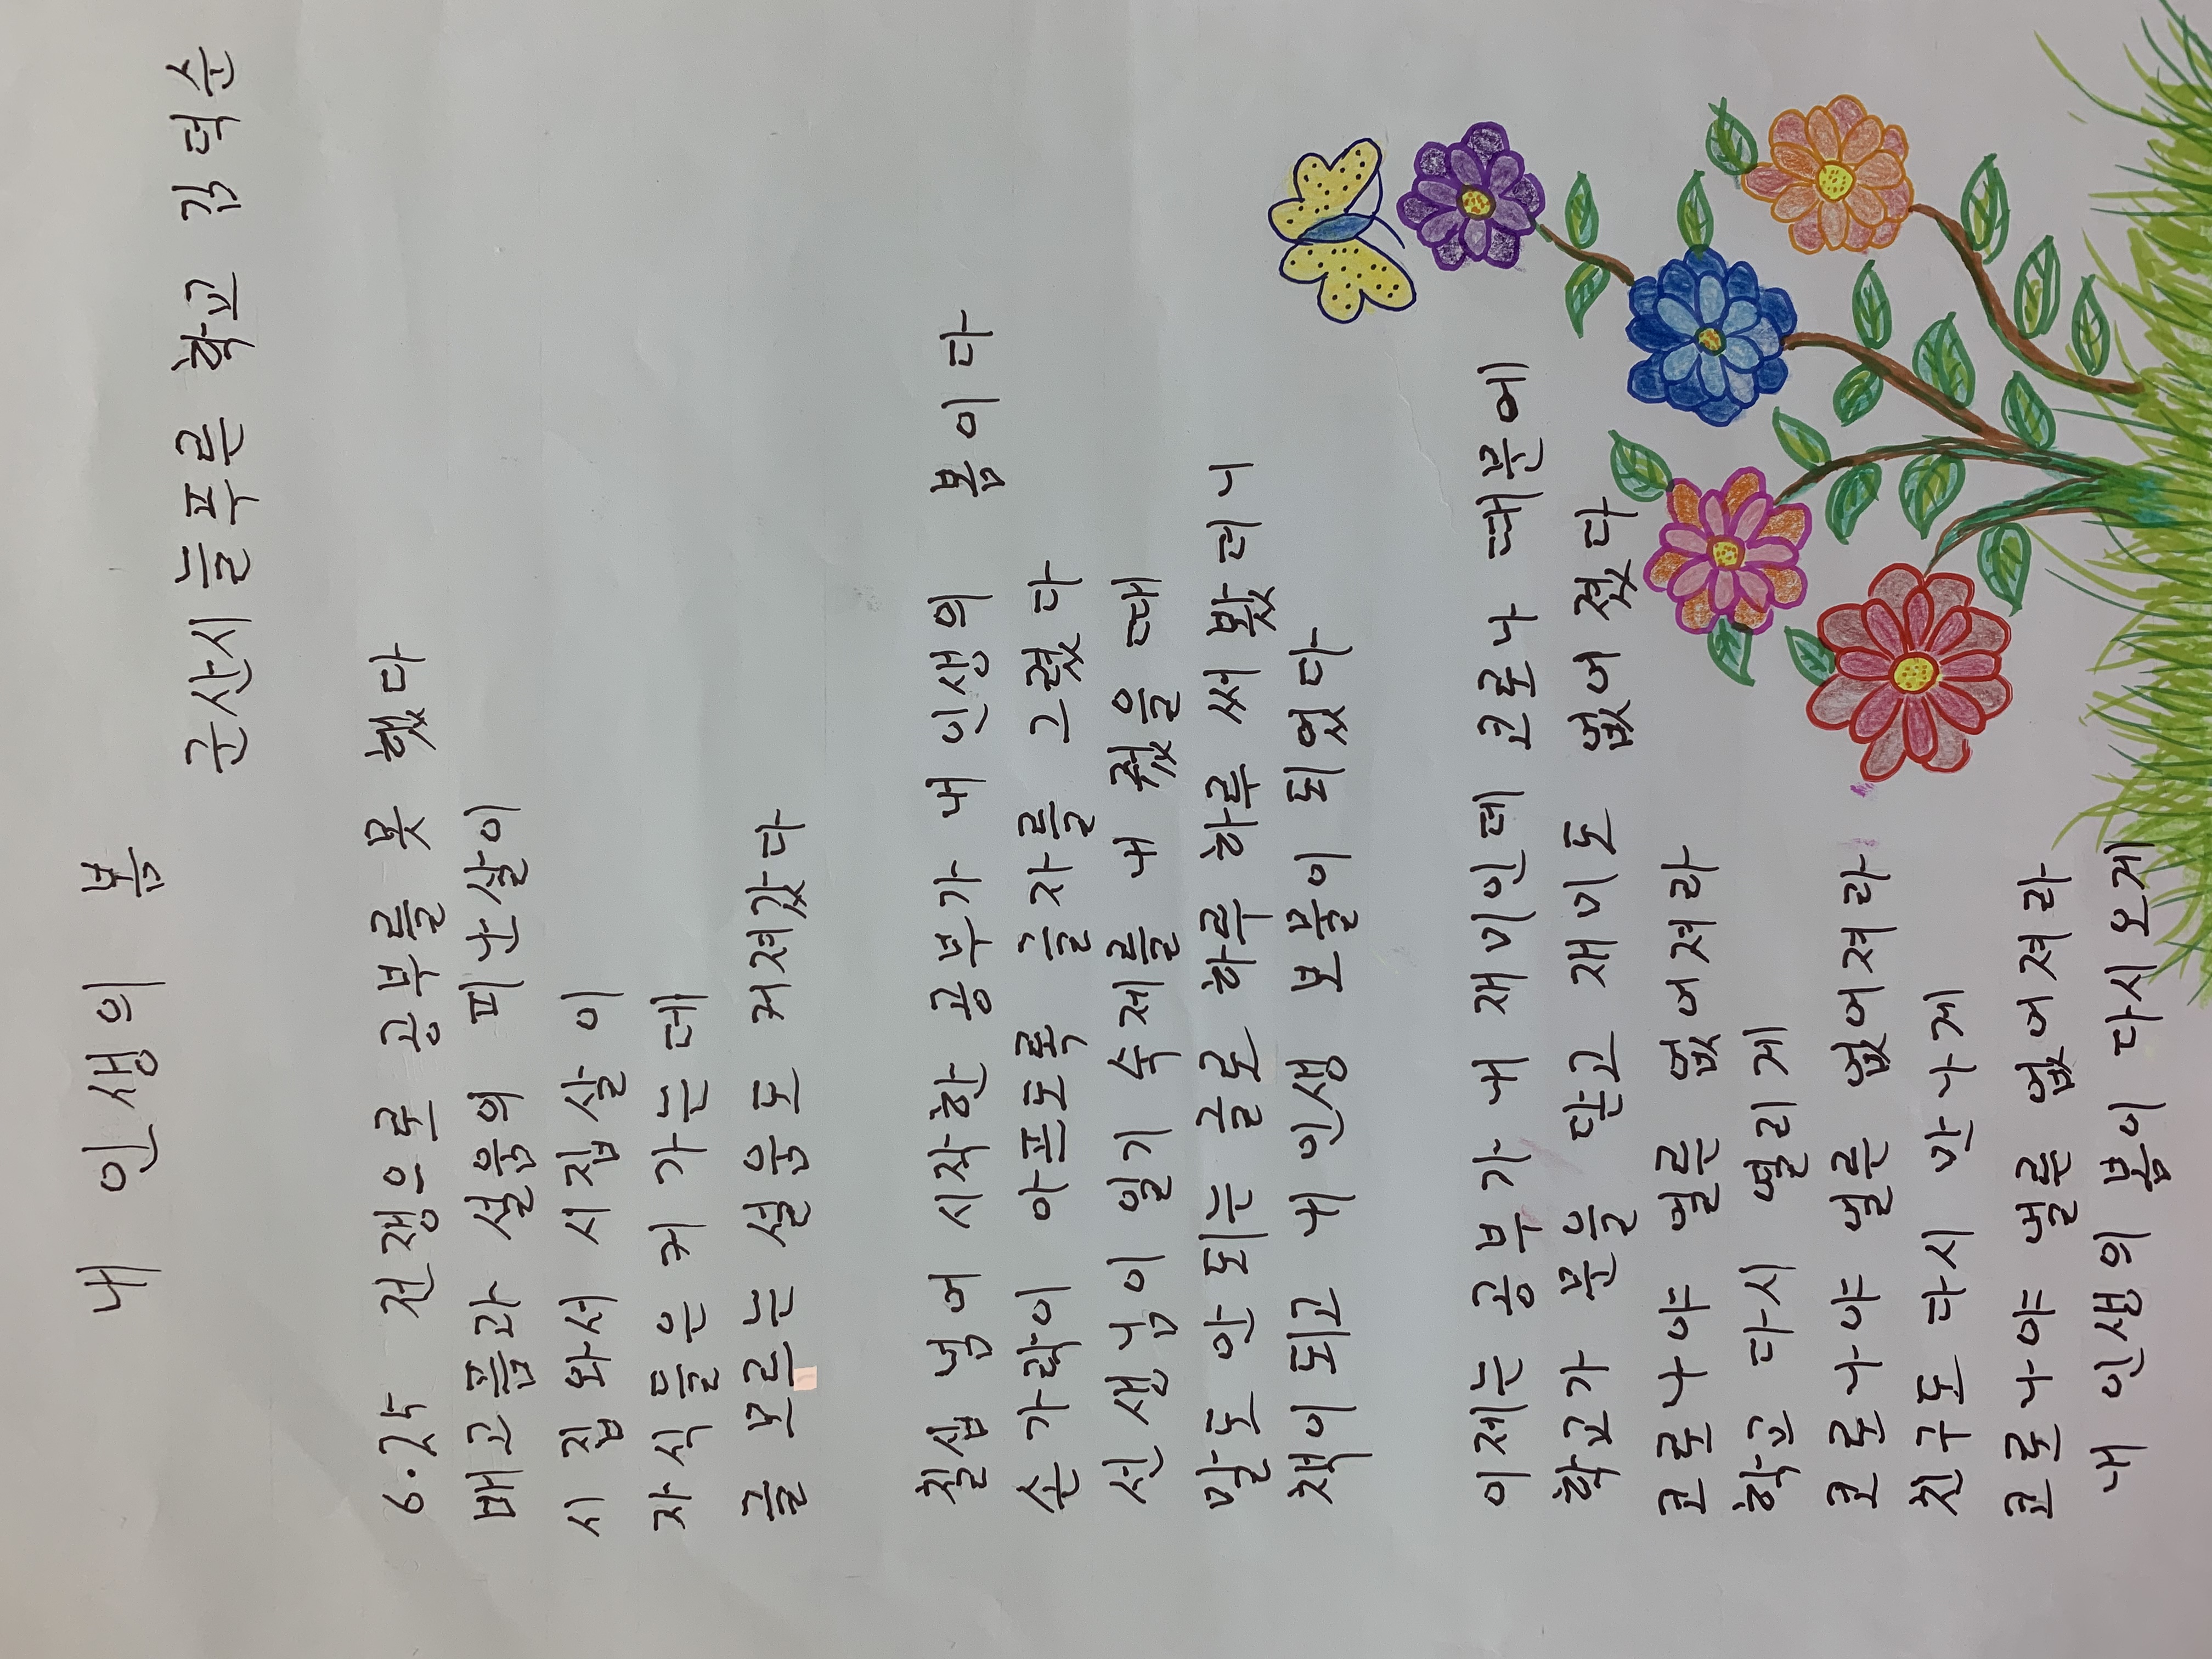 내 인생의 봄
군산시늘푸른 학교 김덕순
6.25 전쟁으로 공부를 못 했다
배고픔과 설움의 피난살이
시집 와서 시집살이
자식들은 커 가는데
글 모르는 설움도 커져갔다
칠십 넘어 시작한 공부가 내 인생의 봄이다
손가락이 아프도록 글자를 그렸다
선생님이 일기 숙제를 내 줬을 때
말도 안 되는 글로 하루 하루 써 봤더니
책이 되고 내 인생 보물이 되었다
이제는 공부가 내 재미인데 코로나 때문에
학교가 문을 닫고 재미도 없어 졌다
코로나야 얼른 없어져라
학교 다시 열리게
코로나야 얼른 없어져라
친구도 다시 만나게
코로나야 얼른 없어져라
내 인생의 봄이 다시오게